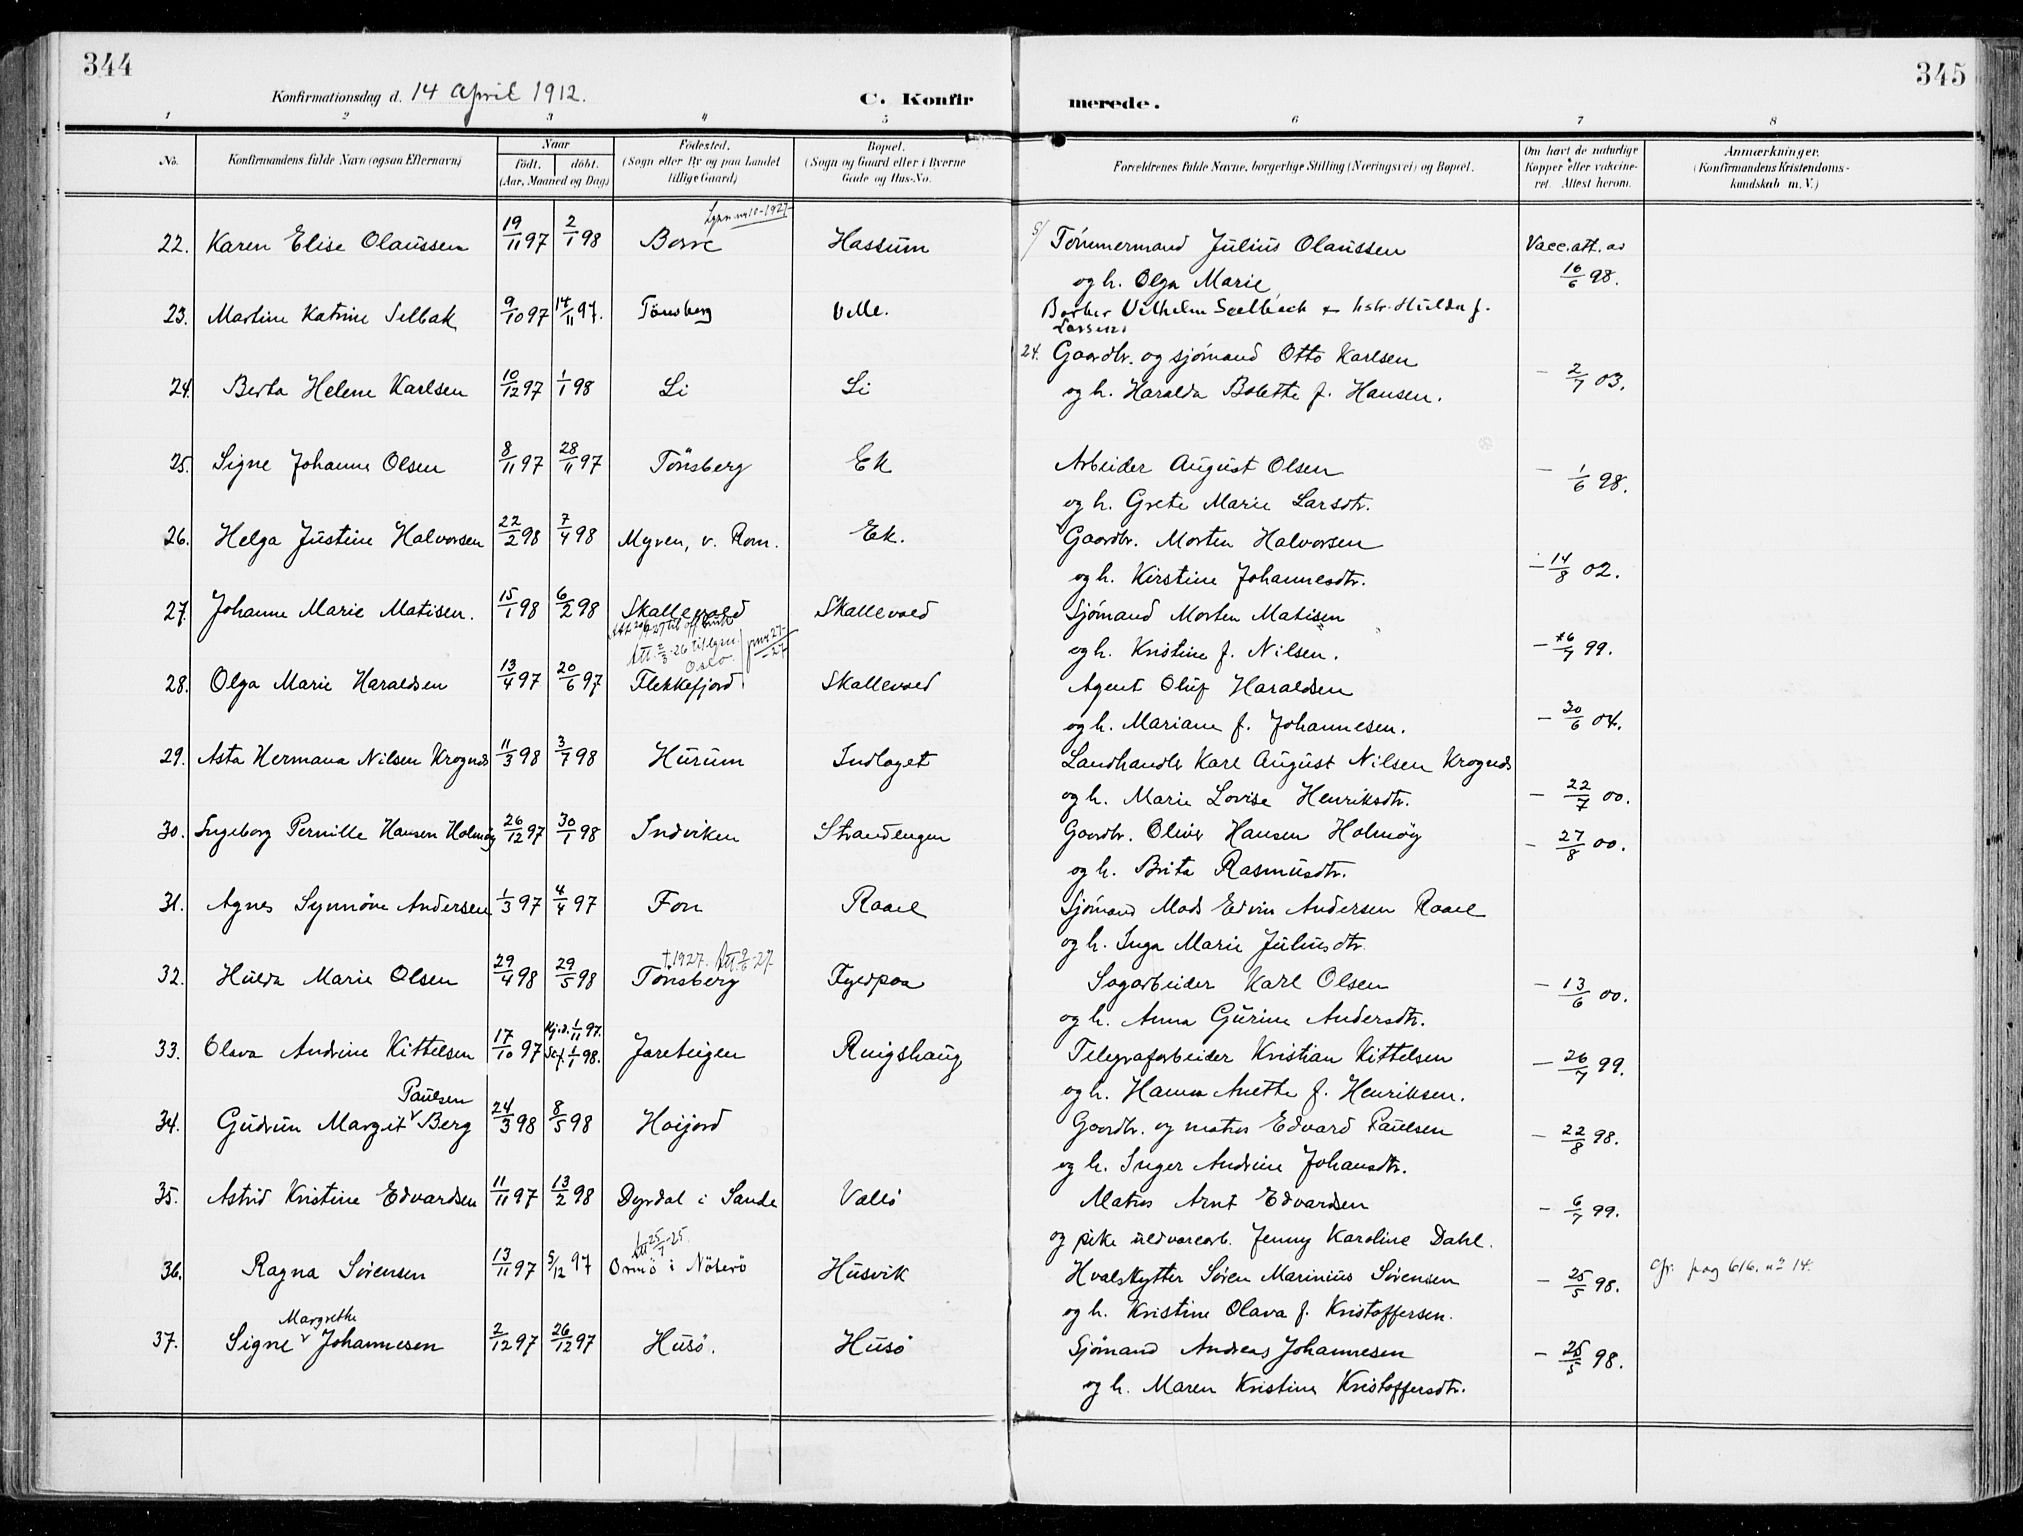 344
345
Konfirmationsdag d. 14 April 1912.
C. Konfir
merede.
1 2 3 4 5 6 7 8
No.
Konfirmandens fulde Navn (ogsaa Efternavn)
Naar
født. døbt.
(Aar, Maaned og Dag)
Fødested.
(Sogn eller By og paa Landet
tillige Gaard)
Bopæl.
(Sogn og Gaard eller i Byerne
Gade og Hus-No.
Forældrenes fulde Navne, borgerlige Stilling (Næringsvei) og Bopæl.
Om havt de naturlige
Kopper eller vaksine-
ret. Attest herom.
Anmærkninger.
(Konfirmandens Kristendoms-
kundskab m. V.)
22. Karen Elise Olaussen 19/11 97 2/1 98 Borre Hassum Tömmermand Julius Olaussen Vacc. att. av
og h. Olga Marie 16/6 98.
23. Martine Katrine Selbak 9/10 97 14/11 97. Tönsberg Valle. Barber Vilhelm Seelbach & hstr. Hulda f.
Larsen.
24. Gaardbr. og sjömand Otto Karlsen
24. Berta Helene Karlsen 10/12 97 1/1 98 Li Li og h. Haralda Bolette f. Hansen. - 2/7 03.
25. Signe Johanne Olsen 8/11 97 28/11 97 Tönsberg Ek Arbeider August Olsen - 1/6 98.
og h. Grete Marie Larsdtr.
26. Helga Justine Halvorsen 22/2 98 7/4 98 Myren, v. Rom. Ek. Gaardbr. Morten Halvorsen
og h. Kirstine Johannesdtr. - 14/8 02.
27. Johanne Marie Matisen. 15/1 98 6/2 98 Skallevold Skallevold Sjömand Morten Matisen
og h. Kristine f. Nilsen. - 16/7 99.
Oslo.
28. Olga Marie Haraldsen 13/4 97 20/6 97 Flekkefjord Skallevold Agent Oluf Haraldsen
og h. Mariane f. Johannesen. - 30/6 04.
29. Asta Hermana Nilsen Krognes 11/3 98 3/7 98 Hurum Indlaget Landhandler Karl August Nilsen Krognes
og h. Marie Lovise Henriksdtr. - 22/7 00.
30. Ingeborg Pernille Hansen Holmøy 26/12 97 30/1 98 Indviken Strandengen Gaardbr. Oliver Hansen Holmøy - 27/8 00.
og h. Brita Rasmusdtr.
31. Agnes Synnöve Andersen 1/3 97 4/4 97 Fon Raael Sjömand Mads Edvin Andersen Raael
og h. Inga Marie Juliusdtr.
† 1927. Att. 9/6-27
32. Hulda Marie Olsen 29/4 98 29/5 98 Tönsberg Fyldpaa Sagarbeider Karl Olsen - 13/6 00.
og h. Anna Gurine Andersdtr.
Hj.d. 1/11 97.
33. Olava Andrine Kittelsen 17/10 97 1/1 98. Jareteigen Ringshaug Telegrafarbeider Kristian Kittelsen - 26/7 99.
og h. Hanna Anette f. Henriksen.
Paulsen
34. Gudrun Margit v Berg 24/3 98 8/5 98 Höijord Gaardbr. og matros Edvard Paulsen - 22/8 98.
og h. Inger Andrine Johansdtr.
35. Astrid Kristine Edvardsen 11/11 97 13/2 98 Dyrdal i Sande Vallö Matros Arnt Edvardsen - 6/7 99.
og pike uldvarearb. Jenny Karoline Dahl.
Att 25/7-25.
36. Ragna Sörensen 13/11 97 5/12 97 Ormö i Nötterö Husvik Hvalskytter Sören Marinius Sörensen - 25/5 98. Cfr. pag 616. no 14.
og h. Kristine Olava f. Kristoffersen.
Margrethe
37. Signe v Johannesen 2/12 97 26/12 97 Husö. Husö Sjömand Andreas Johannesen - 25/5 98.
og h. Maren Kristine Kristoffersdtr.